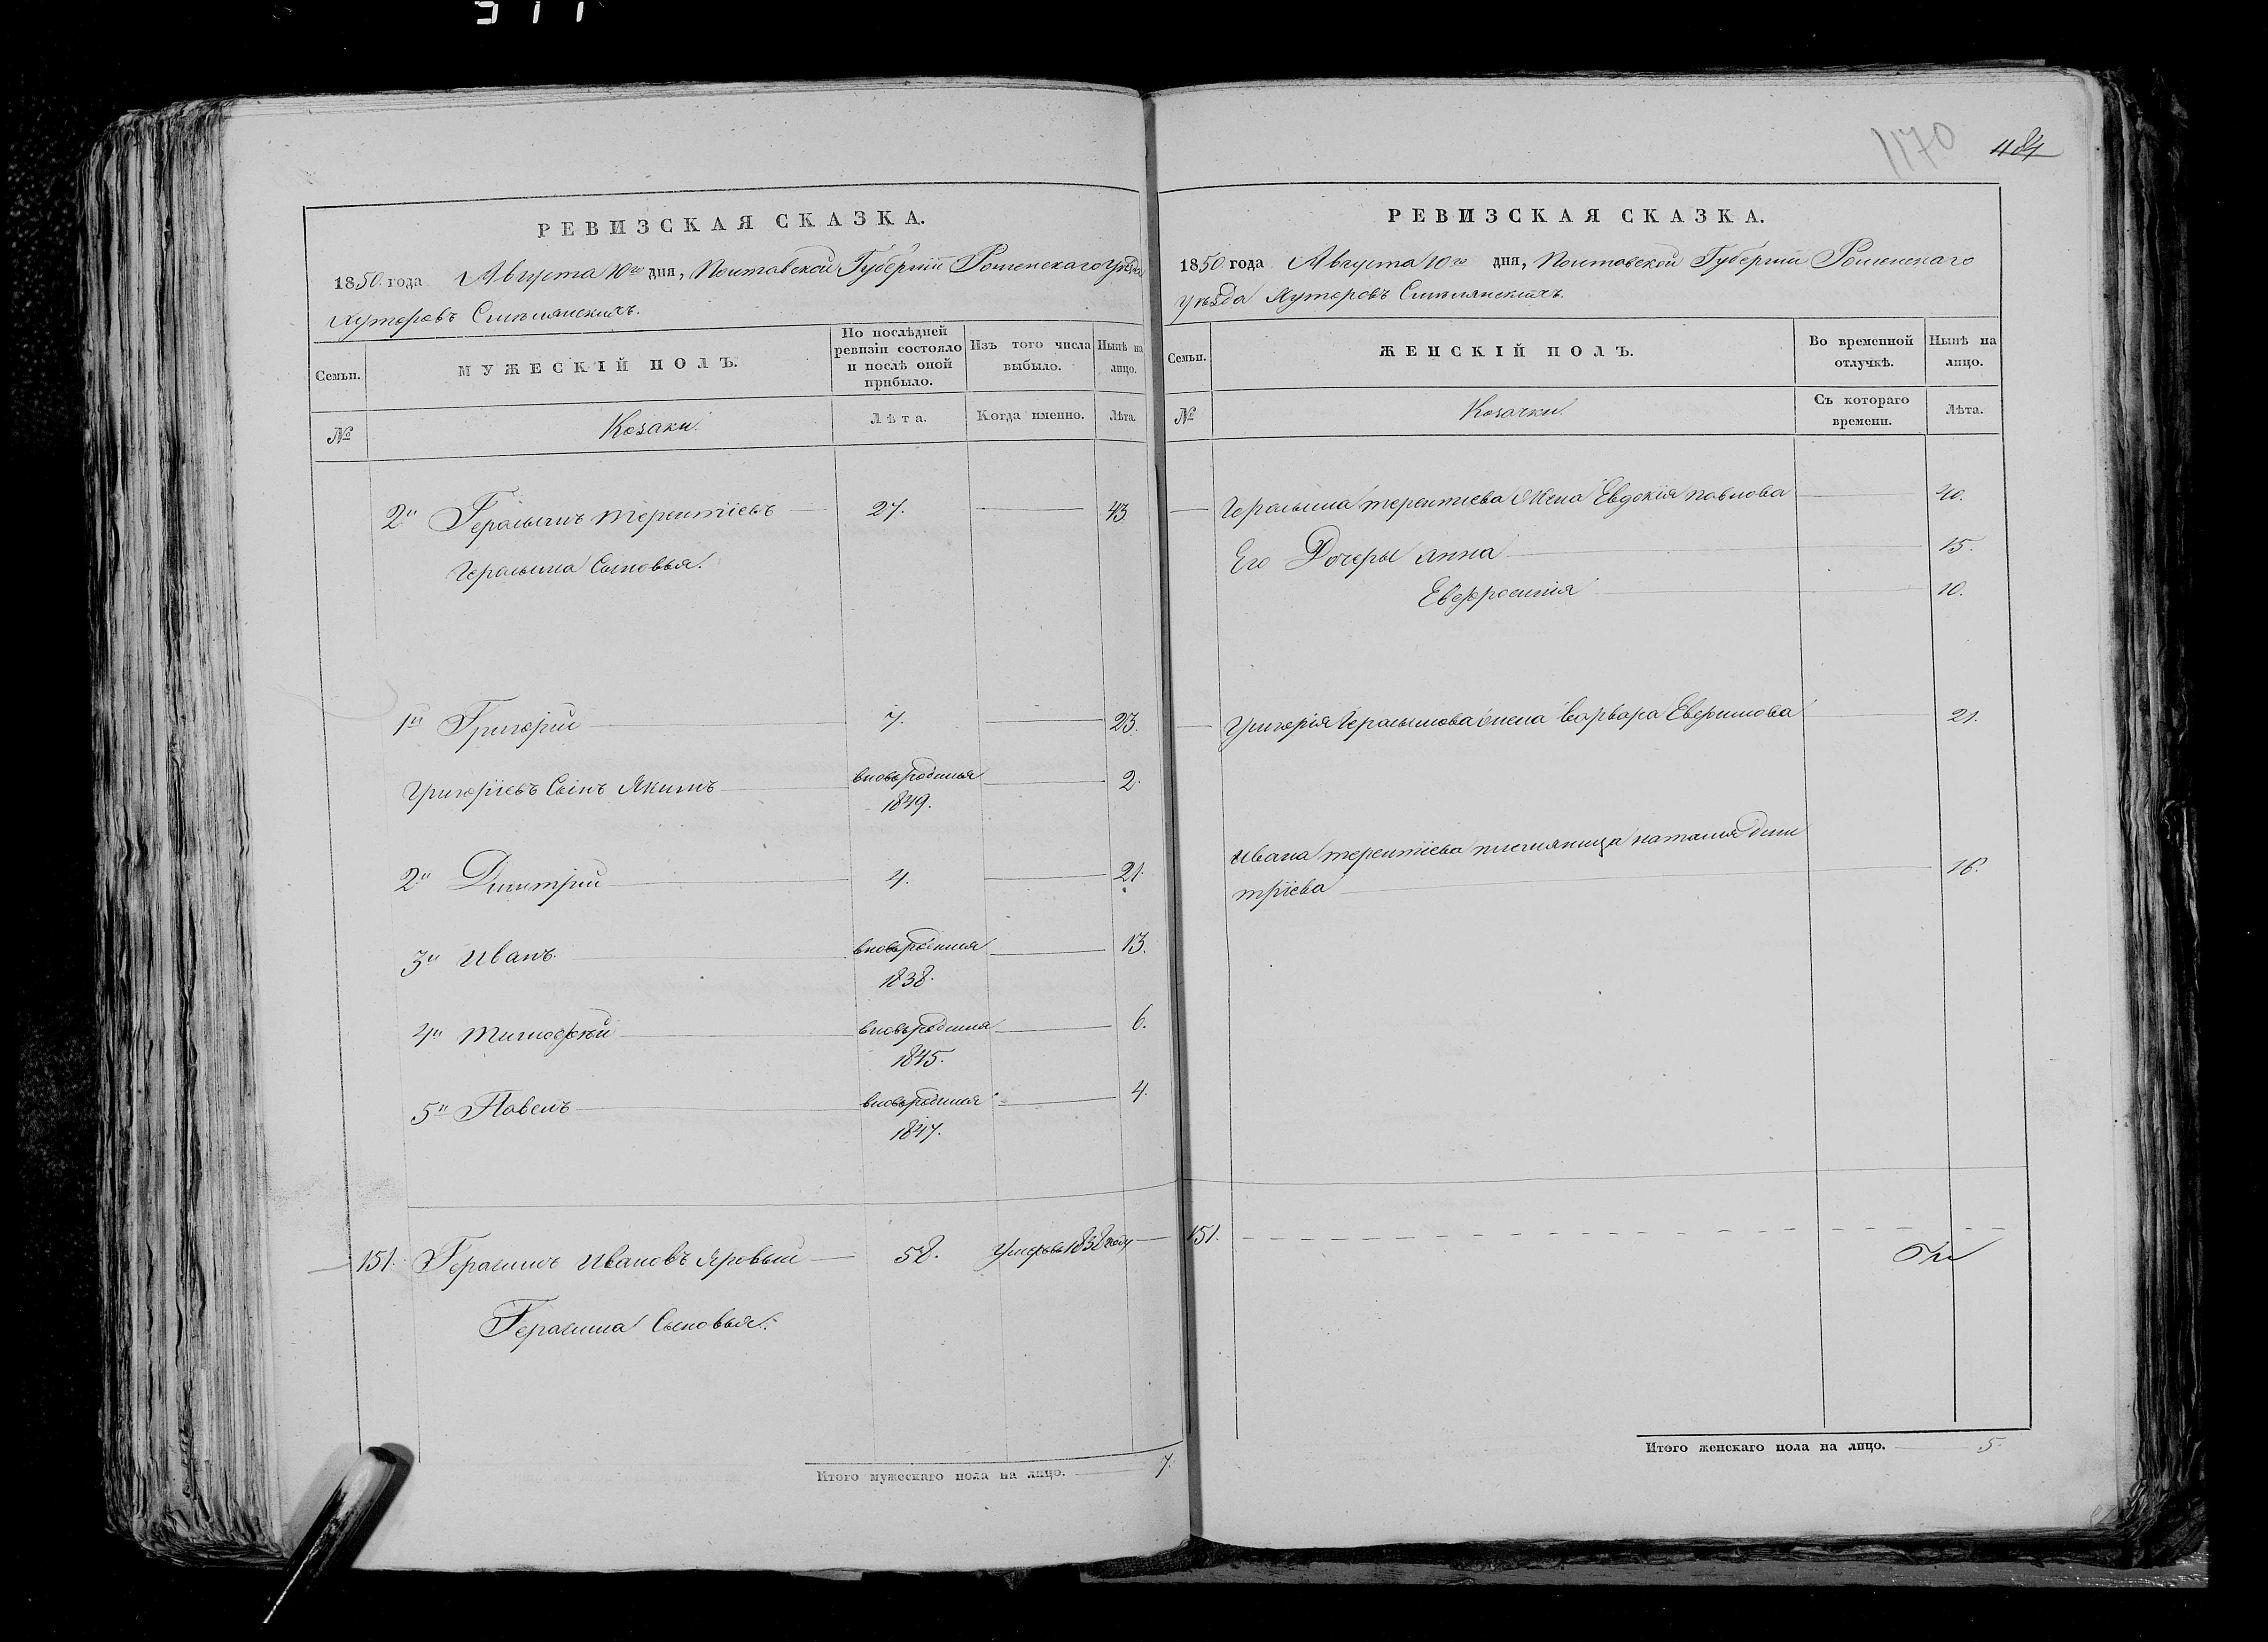 1170
484
РЕВИЗСКАЯ СКАЗКА.
1850 года Августа 10го дня, Полтавской Губерніи Роменскаго Уѣзда
Хуторовъ
Семьи.
МУЖЕСКІЙ ПОЛЪ.
По послѣдней ревизіи состояло и послѣ оной прибыло.
Изъ того числа выбыло.
Нынѣ на лицо.
№
Козаки.
Лѣта.
Когда именно.
Лѣта.
2й Герасымъ терентіевъ 27. 43.
Герасыма Сыновья:
1й Григорій 7. 23.
Григоріевъ Сынъ Якимъ вновьродился 2.
1849.
2й Димитрій 4. 21.
3й Иванъ вновьродился 13.
1838.
4й тимофѣй вновьродился 6.
1845.
5й Павелъ вновьродился 4.
1847.
151. Герасимъ Ивановъ Яровый 58. Умеръвъ1838году
Герасима Сыновья:
Итого мужескаго пола на лицо. 7.
РЕВИЗСКАЯ СКАЗКА.
1850 года Августа 10го дня, Полтавской Губерніи Роменскаго
Уѣзда Хуторовъ
Семьи.
ЖЕНСКІЙ ПОЛЪ.
Во временной отлучкѣ.
Нынѣ на лицо.
№
Козачки.
Съ котораго времени.
Лѣта.
Герасыма терентіева Жена Евдокія павлова 40.
Его Дочеры анна 15.
Евфросинія 10.
Григорія Герасымова жена варвара Евфимова 21.
Ивана терентіева племяница наталия дими
тріева 16.
151.
Итого женскаго пола на лицо. 5.